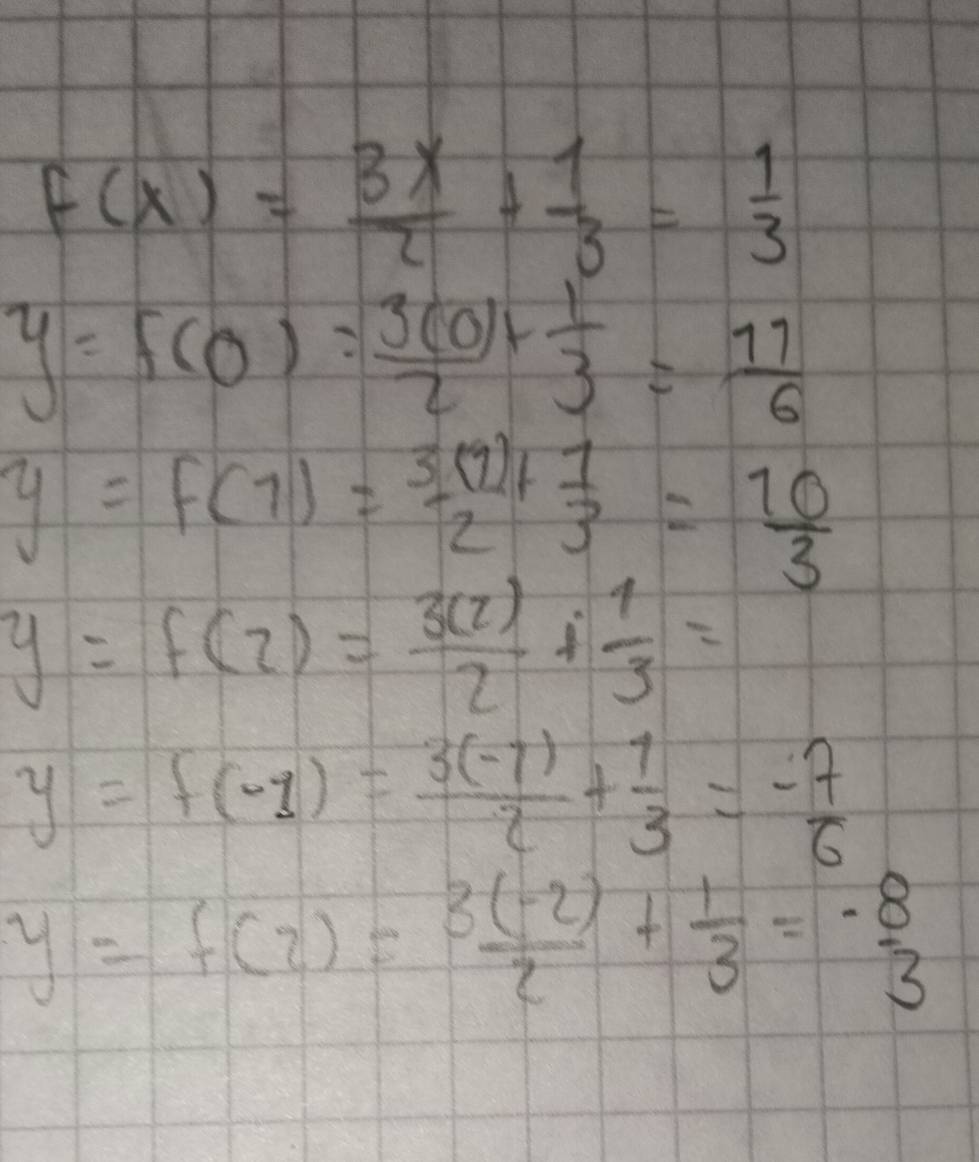 f(x) = 3x/2 + 1/3 = 1/3
y = f(0) = 3(0)/2 + 1/3 = 11/6
y = f(1) = 3(1)/2 + 1/3 = 10/3
y = f(2) = 3(2)/2 + 1/3 =
y = f(-1) = 3(-1)/2 + 1/3 = -7/6
y = f(2) = 3(-2)/2 + 1/3 = -8/3